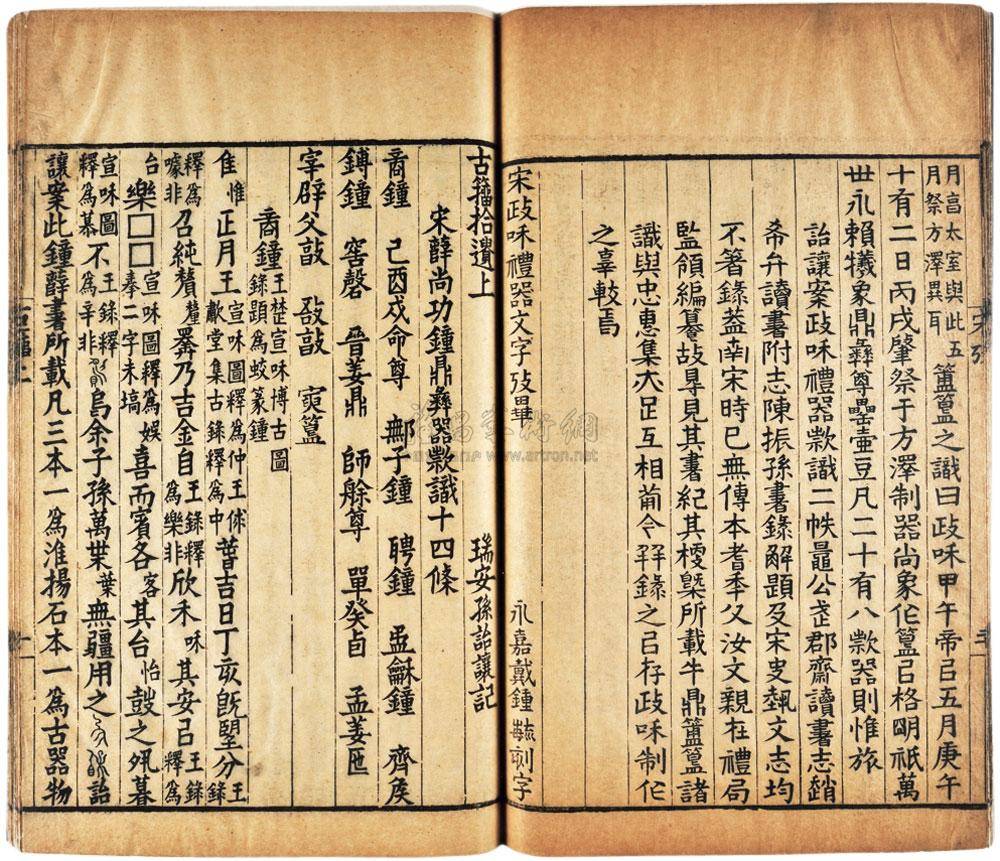 月亯太室與此五月祭方澤異耳 簠簋之識曰政咊甲午帝㠯五月庚午
十有二日丙戌肇祭于方澤制器尚象佗簋㠯格朙祇萬
丗永賴犧象鼎彝尊罍壷豆凡二十有八款器則惟旅
詒讓案政咊禮器款識二帙鼂公武郡齋讀書志趙
希弁讀書附志陳振孫書錄解題及宋史埶文志均
不箸錄葢南宋時已無傳本耆季父汝文親在禮局
監領編纂故㝵見其書紀其梗槩所載牛鼎簠簋諸
識與忠惠集大㫖互相葥今幷錄之㠯存政咊制佗
之辜較焉
宋政咊禮器文字攷畢 永嘉戴鍾毓刻字
古籀拾遺上 瑞安孫詒讓記
宋薛尚功鐘鼎彝器款識十四條
啇鐘 己酉戍命尊 鄦子鐘 聘鐘 盄龢鐘 齊矦
鎛鐘 窖磬 晉姜鼎 師艅尊 單癸卣 孟姜匜
宰辟父敦 敔敦 寅簋
啇鐘 王楚宣咊博古圖錄題爲蛟篆鐘
隹惟正月王宣咊圖釋爲仲王俅歗堂集古錄釋爲中萅吉日丁亥旣朢分王錄
釋爲㘌非召純釐乃吉金自王錄釋爲樂非欣禾咊其安㠯王錄釋爲
台樂□□宣咊圖釋爲娛奉二字未塙喜而賓各客其台怡鼓之夙莫
宣咊圖釋爲慕不王錄釋爲辛非烏余子孫萬枼葉無疆用之詒
讓案此鐘薛書所載凡三本一爲淮揚石本一爲古器物
www.artron.net